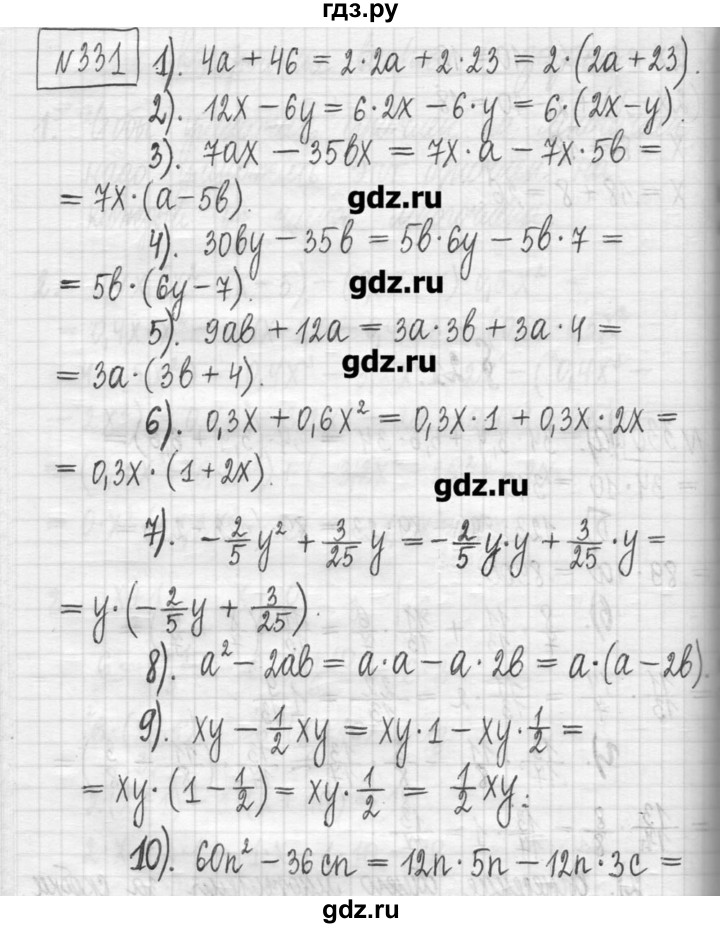 гдз.ру
№331 1). 4a + 46 = 2·2a + 2·23 = 2·(2a+23).
2). 12x − 6y = 6·2x − 6·y = 6·(2x−y).
3). 7ax − 35bx = 7x·a − 7x·5b =
= 7x·(a−5b).
gdz.ru
4). 30by − 35b = 5b·6y − 5b·7 =
= 5b·(6y−7).
gdz.ru
5). 9ab + 12a = 3a·3b + 3a·4 =
= 3a·(3b+4).
gdz.ru
6). 0,3x + 0,6x² = 0,3x·1 + 0,3x·2x =
= 0,3x·(1+2x).
gdz.ru
7). −2/5 y² + 3/25 y = −2/5 y·y + 3/25·y =
= y·(−2/5 y + 3/25).
8). a² − 2ab = a·a − a·2b = a·(a−2b).
9). xy − 1/2 xy = xy·1 − xy·1/2 =
= xy·(1−1/2) = xy·1/2 = 1/2 xy;
10). 60n² − 36cn = 12n·5n − 12n·3c =
gdz.ru